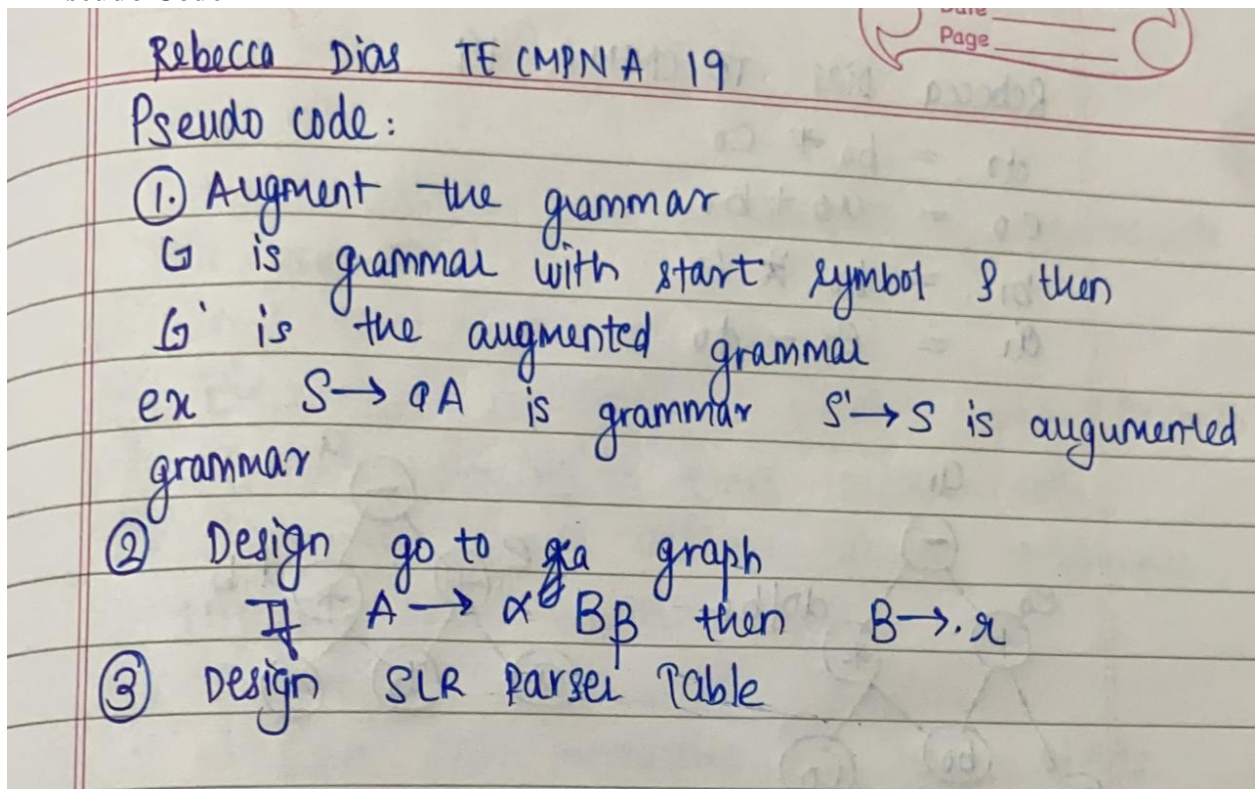 Date
Page
Rebecca Dias TE CMPN A 19
Pseudo code:
①. Augment the grammar
G is grammar with start symbol S then
G' is the augmented grammar
ex S → aA is grammar S' → S is augumented
grammar
② Design go to graph
If A → α Bβ then B → .r
③ Design SLR Parser Table